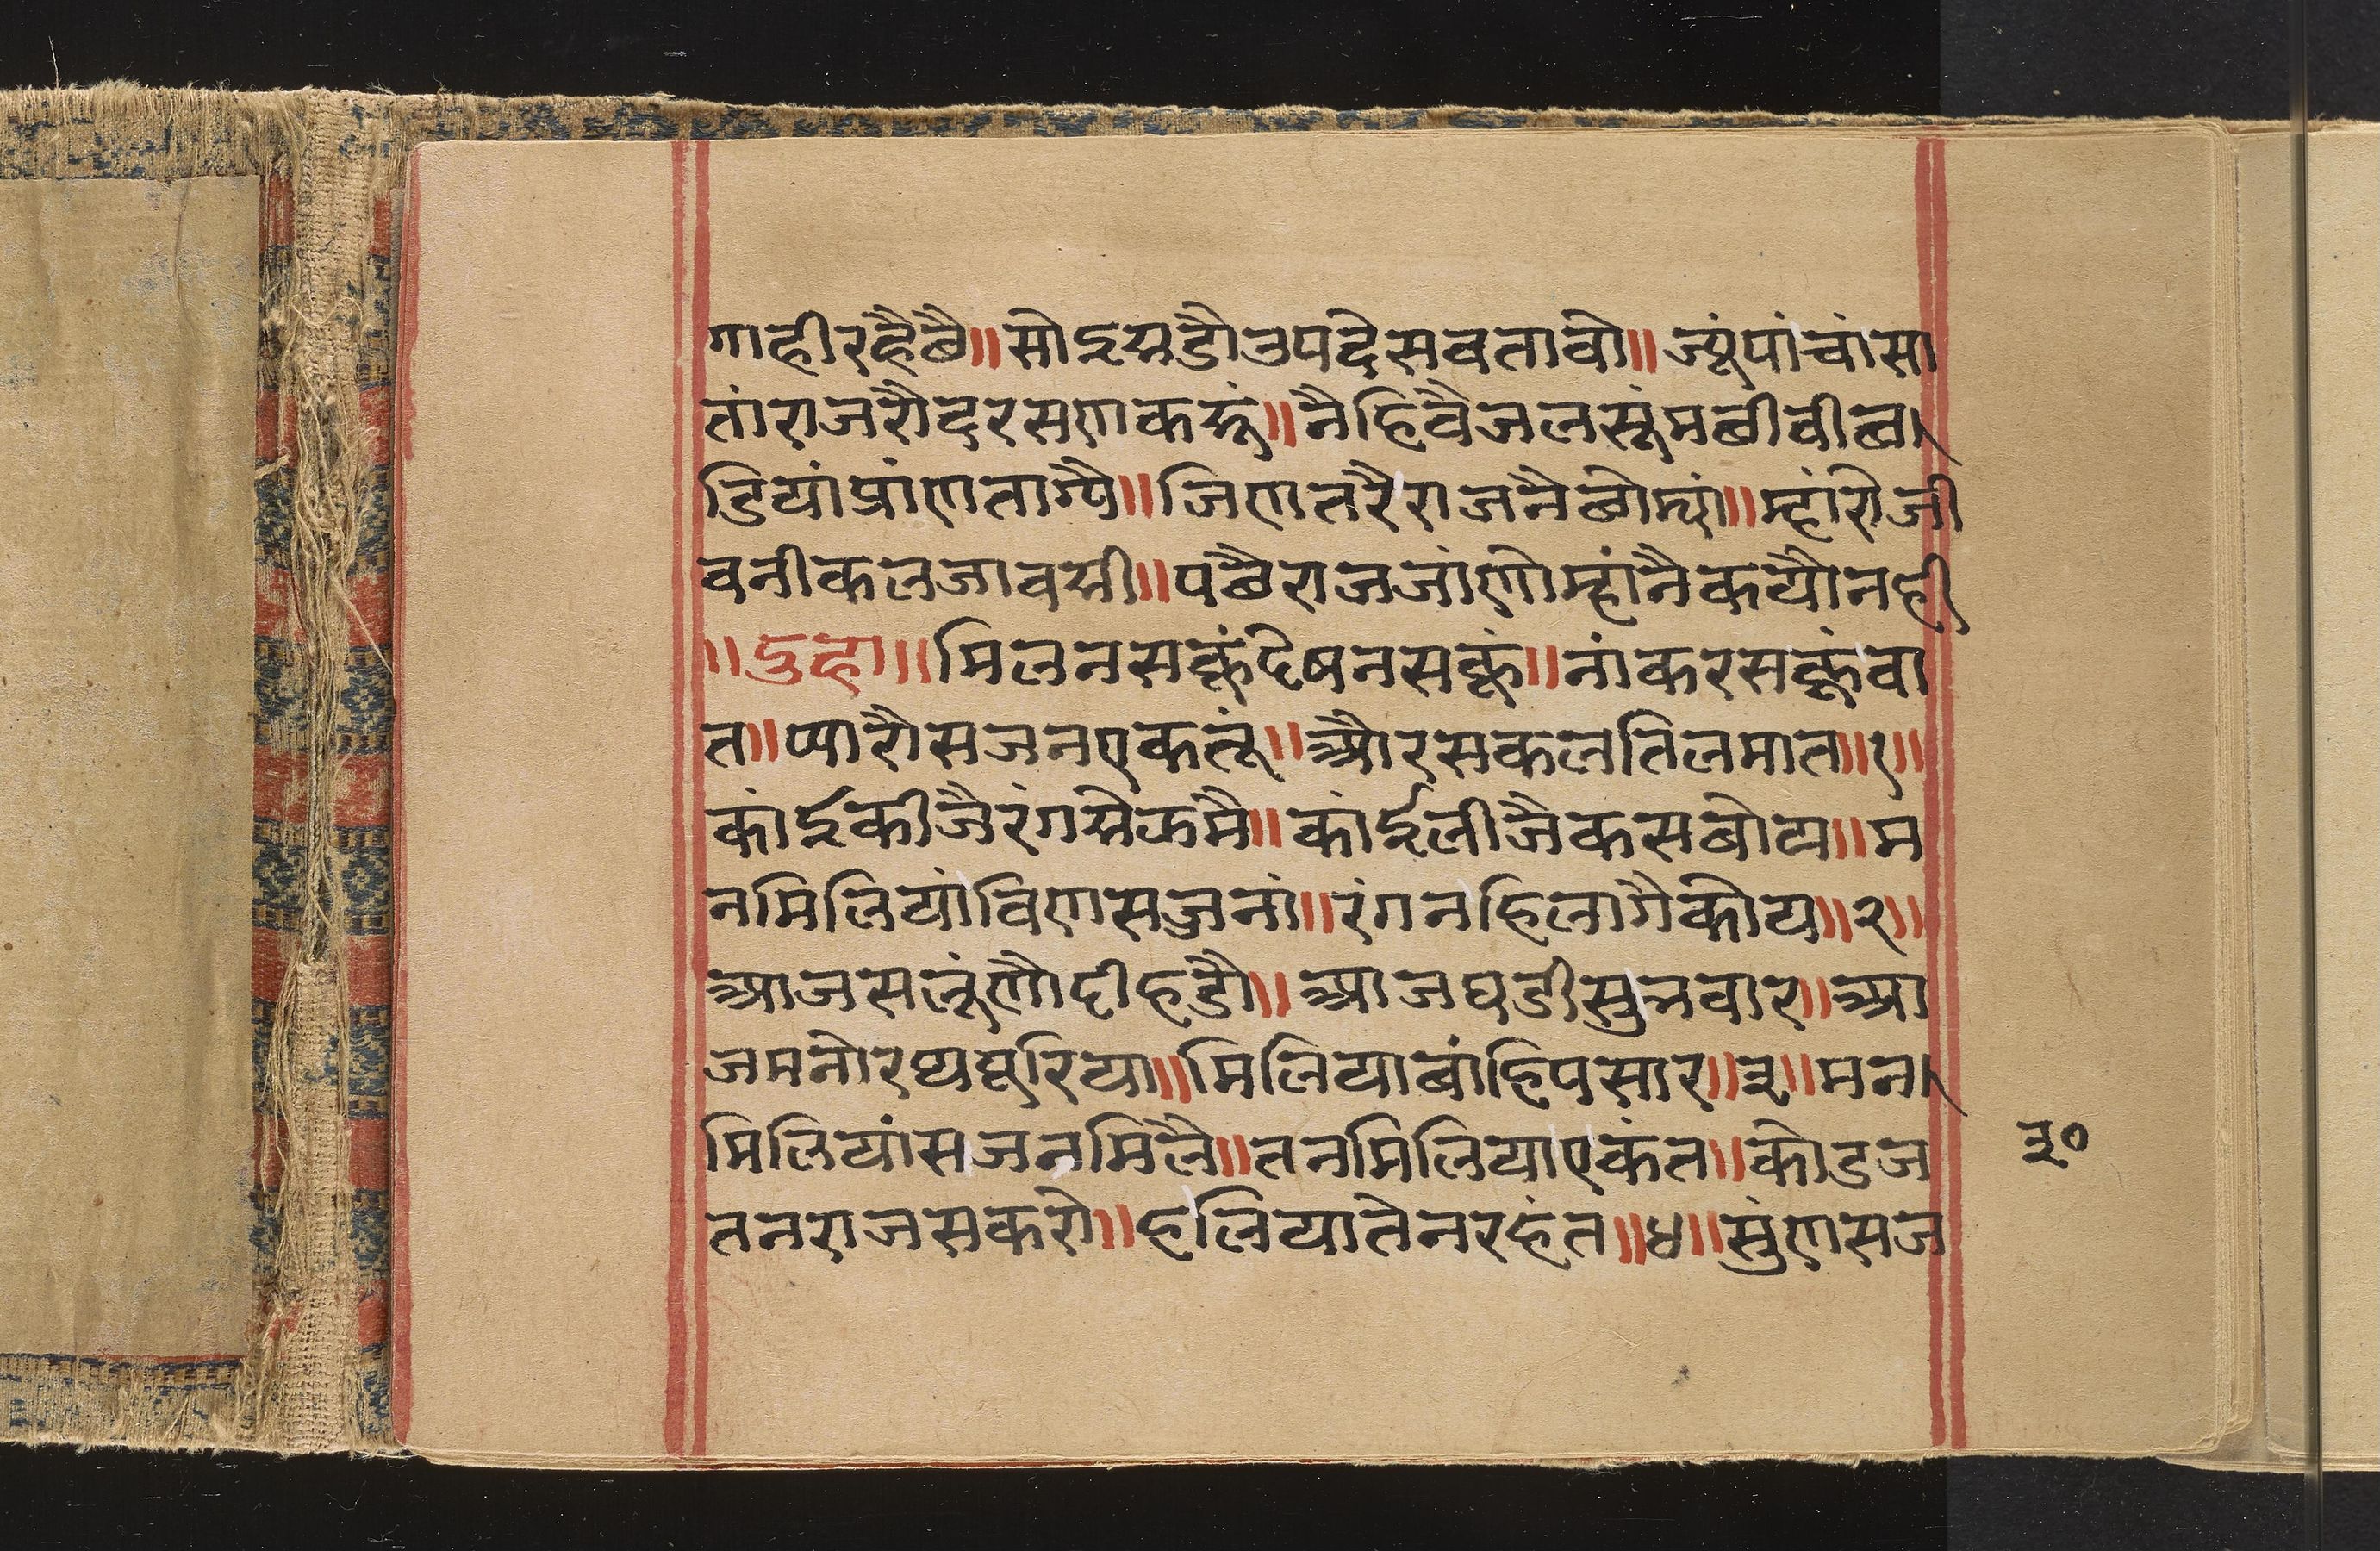 गाहीरहैछै॥सोऽसडौउपदेसवतावो॥ज्यूंपांचांसा
तांराजरौदरसणकरूं॥नैहिंवैजलसूंमछीवीछ
डियांप्रांणतागपै॥जिणतरैराजनैछोड्यां॥म्हांरोजी
वनीकलजावसी॥पछैराजजांणोम्हांनैकयौनही
॥दुहा॥मिलनसकूंदेषनसकूं॥नांकरसकूंवा
त॥प्यारौसजनएकतूं॥औरसकलतिलमात॥१॥
कांईकीजैरंगसेकमै॥कांईलीजैकसबोय॥म
नमिलियांविणसजनां॥रंगनहिलागैकोय॥२॥
आजसलूंणौदीहडौ॥आजघडीसुभवार॥आ
जमनोरथपूरिया॥मिलियाबांहिपसार॥३॥मन
मिलियांसजनमिलै॥तनमिलियाएकंत॥कोडज
तनराजसकरो॥हलियातेनरहंत॥४॥सुंणसज
३०